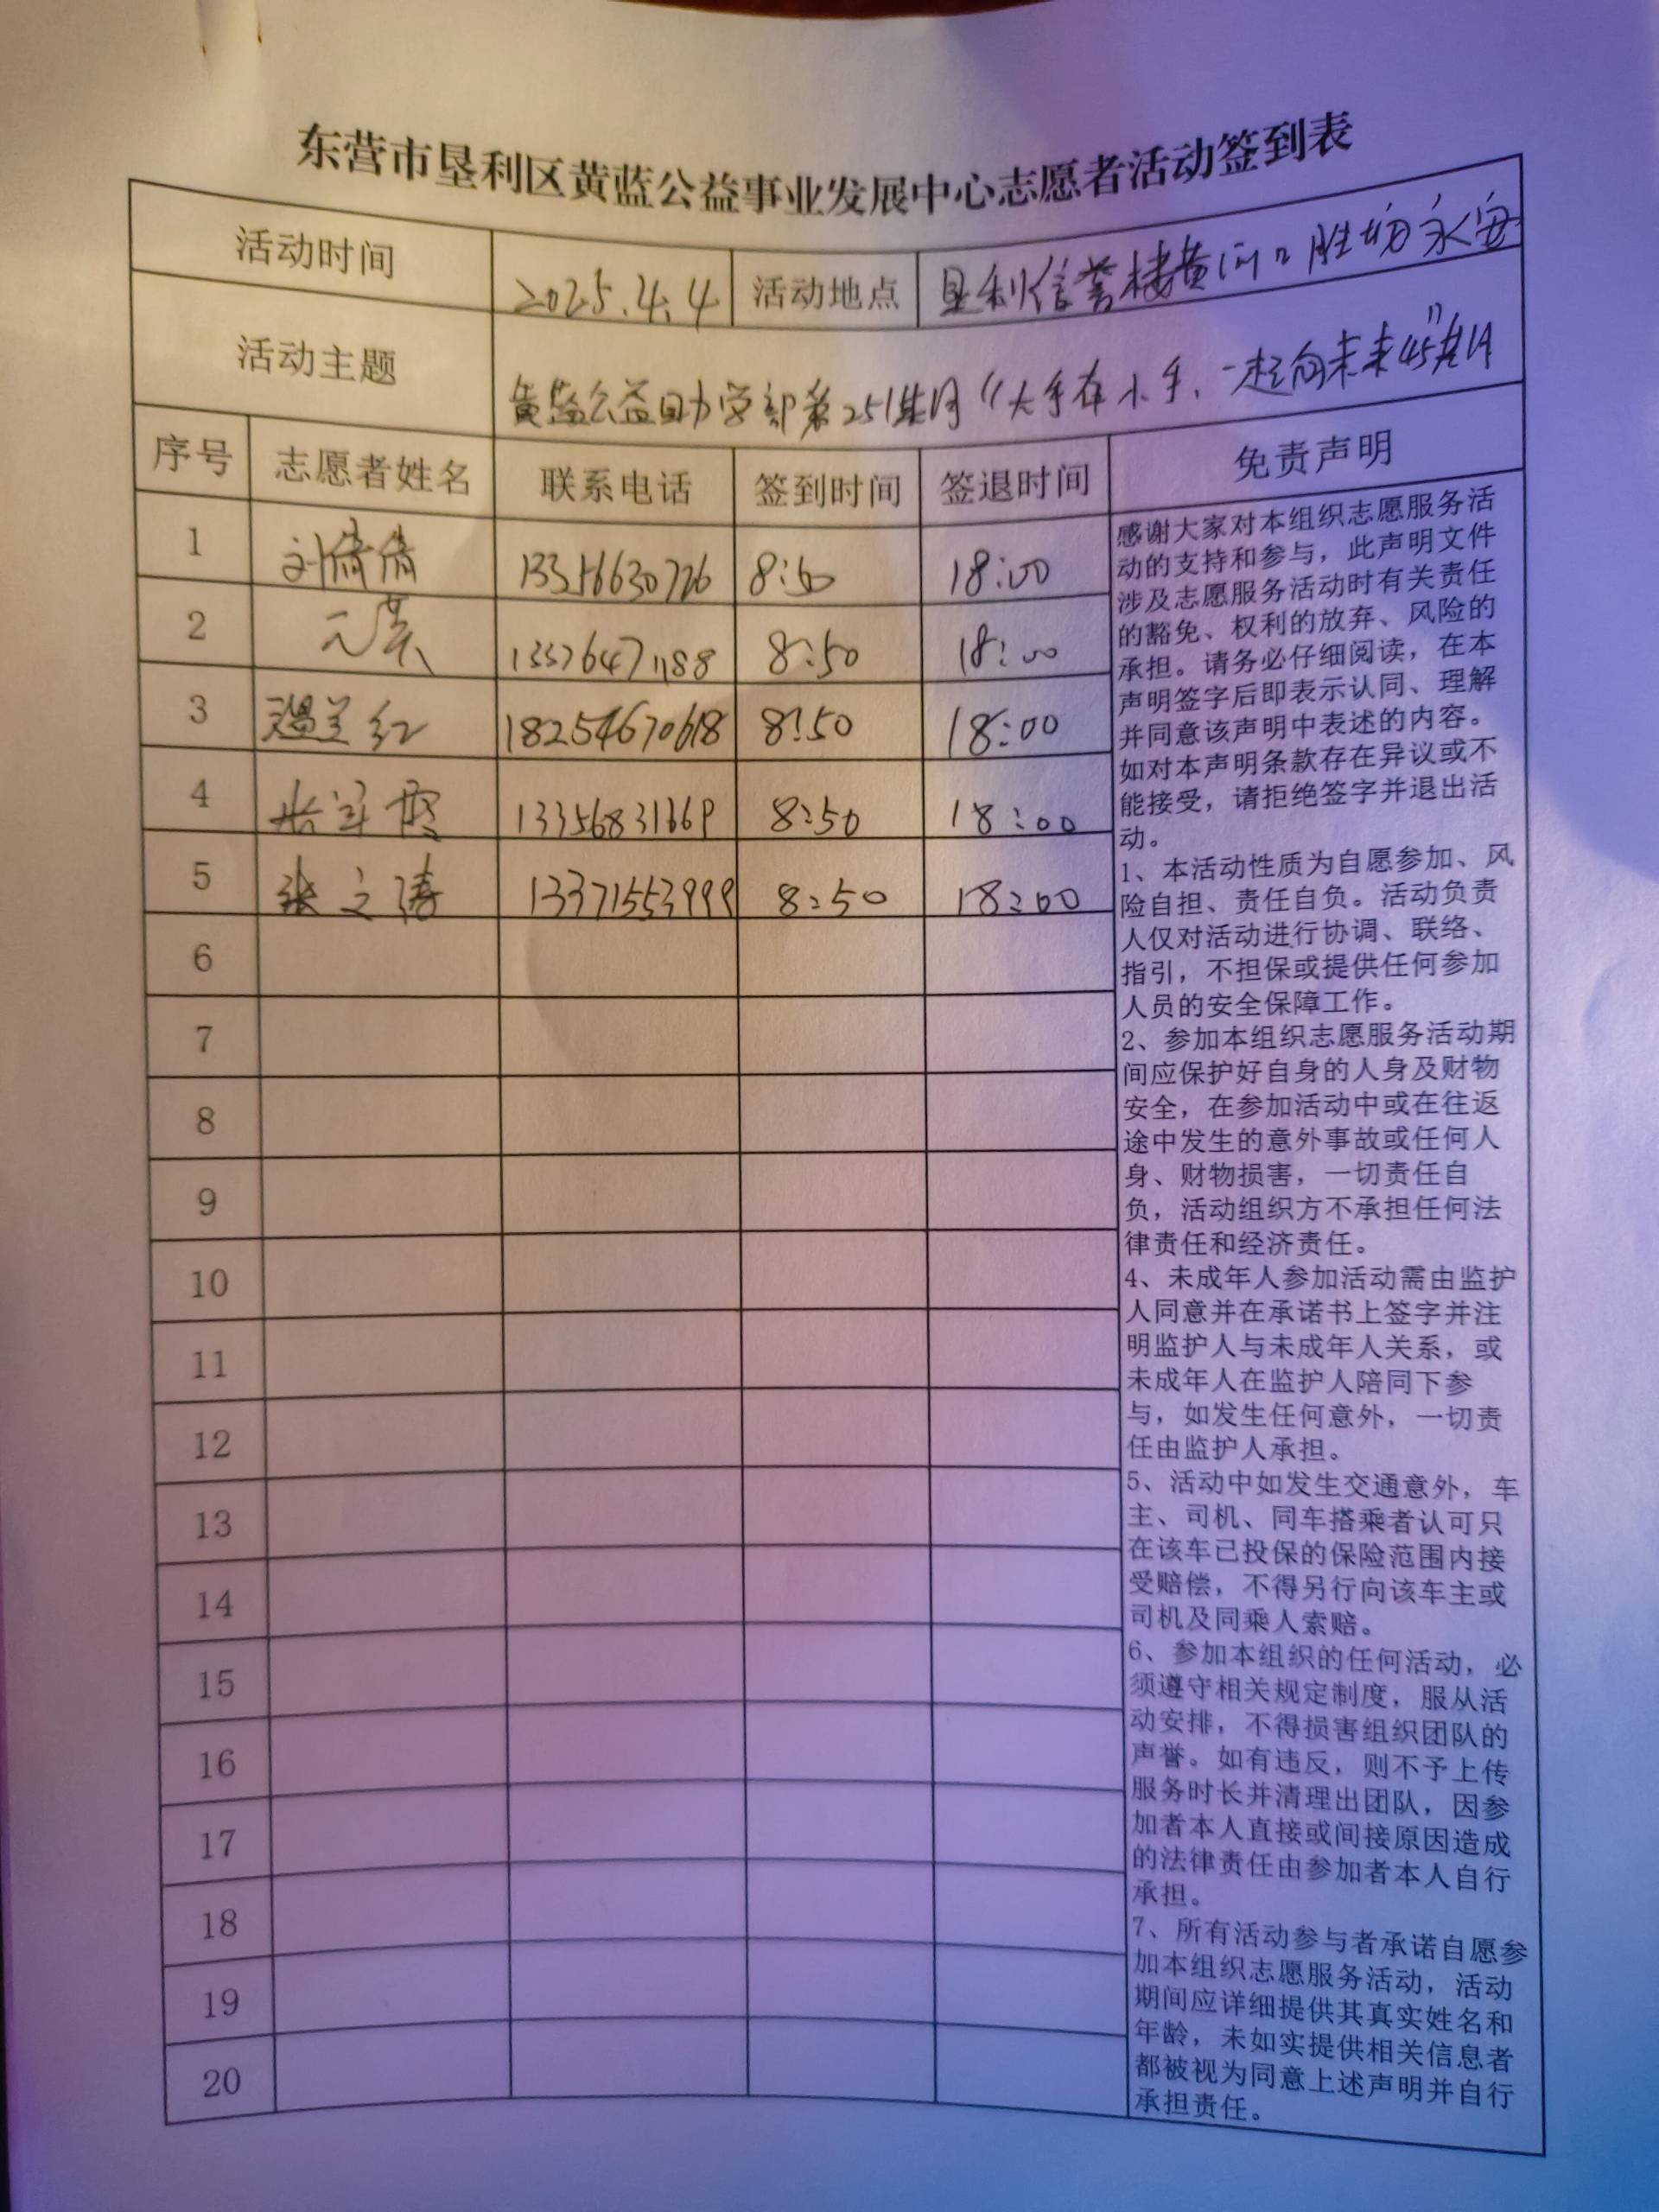 东营市垦利区黄蓝公益事业发展中心志愿者活动签到表
活动时间 2025.4.4 活动地点 垦利信誉楼黄河口胜坨永安
活动主题 黄蓝公益助学部第251集月“大手牵小手,一起向未来”45集月
序号 志愿者姓名 联系电话 签到时间 签退时间 免责声明
1 刘倩倩 13356630726 8:50 18:00
2 8:50 18:00
3 温兰红 18254670618 8:50 18:00
4 13356831669 8:50 18:00
5 张之涛 13371553999 8:50 18:00
6
7
8
9
10
11
12
13
14
15
16
17
18
19
20
感谢大家对本组织志愿服务活
动的支持和参与,此声明文件
涉及志愿服务活动时有关责任
的豁免、权利的放弃、风险的
承担。请务必仔细阅读,在本
声明签字后即表示认同、理解
并同意该声明中表述的内容。
如对本声明条款存在异议或不
能接受,请拒绝签字并退出活
动。
1、本活动性质为自愿参加、风
险自担、责任自负。活动负责
人仅对活动进行协调、联络、
指引,不担保或提供任何参加
人员的安全保障工作。
2、参加本组织志愿服务活动期
间应保护好自身的人身及财物
安全,在参加活动中或在往返
途中发生的意外事故或任何人
身、财物损害,一切责任自
负,活动组织方不承担任何法
律责任和经济责任。
4、未成年人参加活动需由监护
人同意并在承诺书上签字并注
明监护人与未成年人关系,或
未成年人在监护人陪同下参
与,如发生任何意外,一切责
任由监护人承担。
5、活动中如发生交通意外,车
主、司机、同车搭乘者认可只
在该车已投保的保险范围内接
受赔偿,不得另行向该车主或
司机及同乘人索赔。
6、参加本组织的任何活动,必
须遵守相关规定制度,服从活
动安排,不得损害组织团队的
声誉。如有违反,则不予上传
服务时长并清理出团队,因参
加者本人直接或间接原因造成
的法律责任由参加者本人自行
承担。
7、所有活动参与者承诺自愿参
加本组织志愿服务活动,活动
期间应详细提供其真实姓名和
年龄,未如实提供相关信息者
都被视为同意上述声明并自行
承担责任。